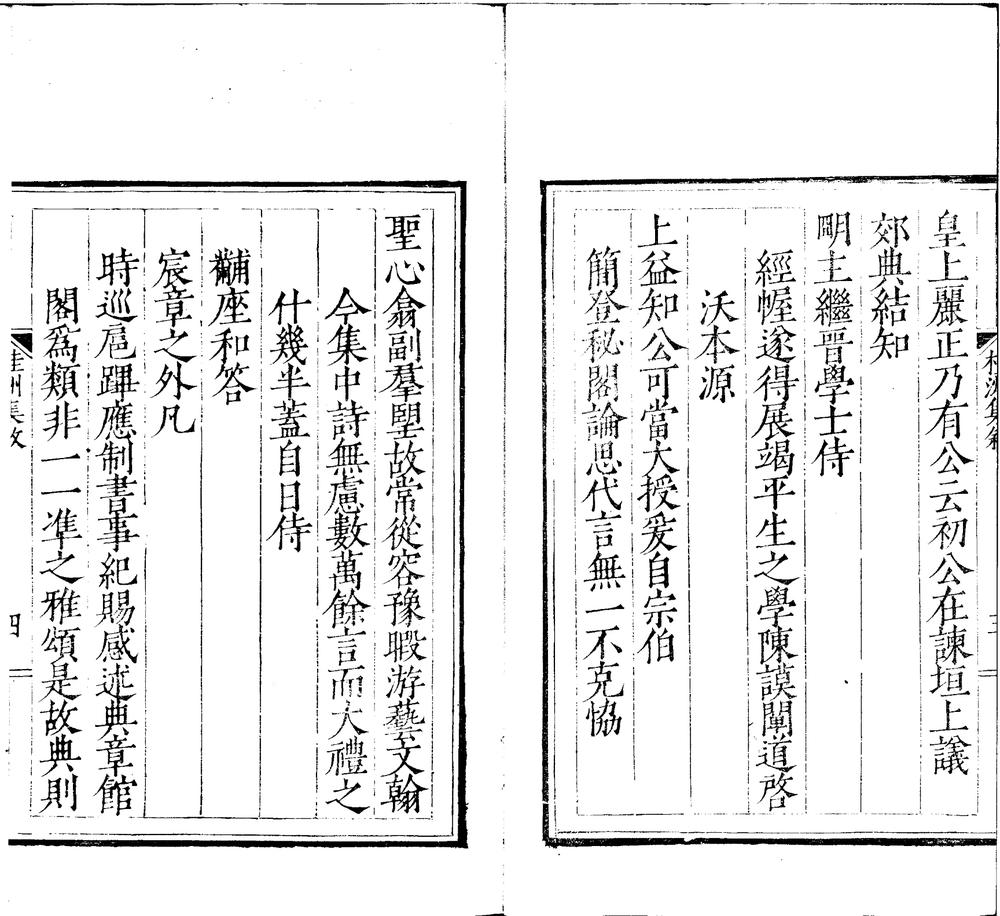 皇上麗正乃有公云初公在諫垣上議
郊典結知
明主繼晉學士侍
經幄遂得展竭平生之學陳謨闡道啓
沃本源
上益知公可當大授爰自宗伯
簡登秘閣論思代言無一不克恊
聖心翕副羣朢故常從容豫暇游藝文翰
今集中詩無慮數萬餘言而大禮之
什幾半蓋自日侍
黼座和答
宸章之外凡
時巡扈蹕應制書事紀賜感述典章館
閣爲類非一一準之雅頌是故典則
桂洲集敘
四